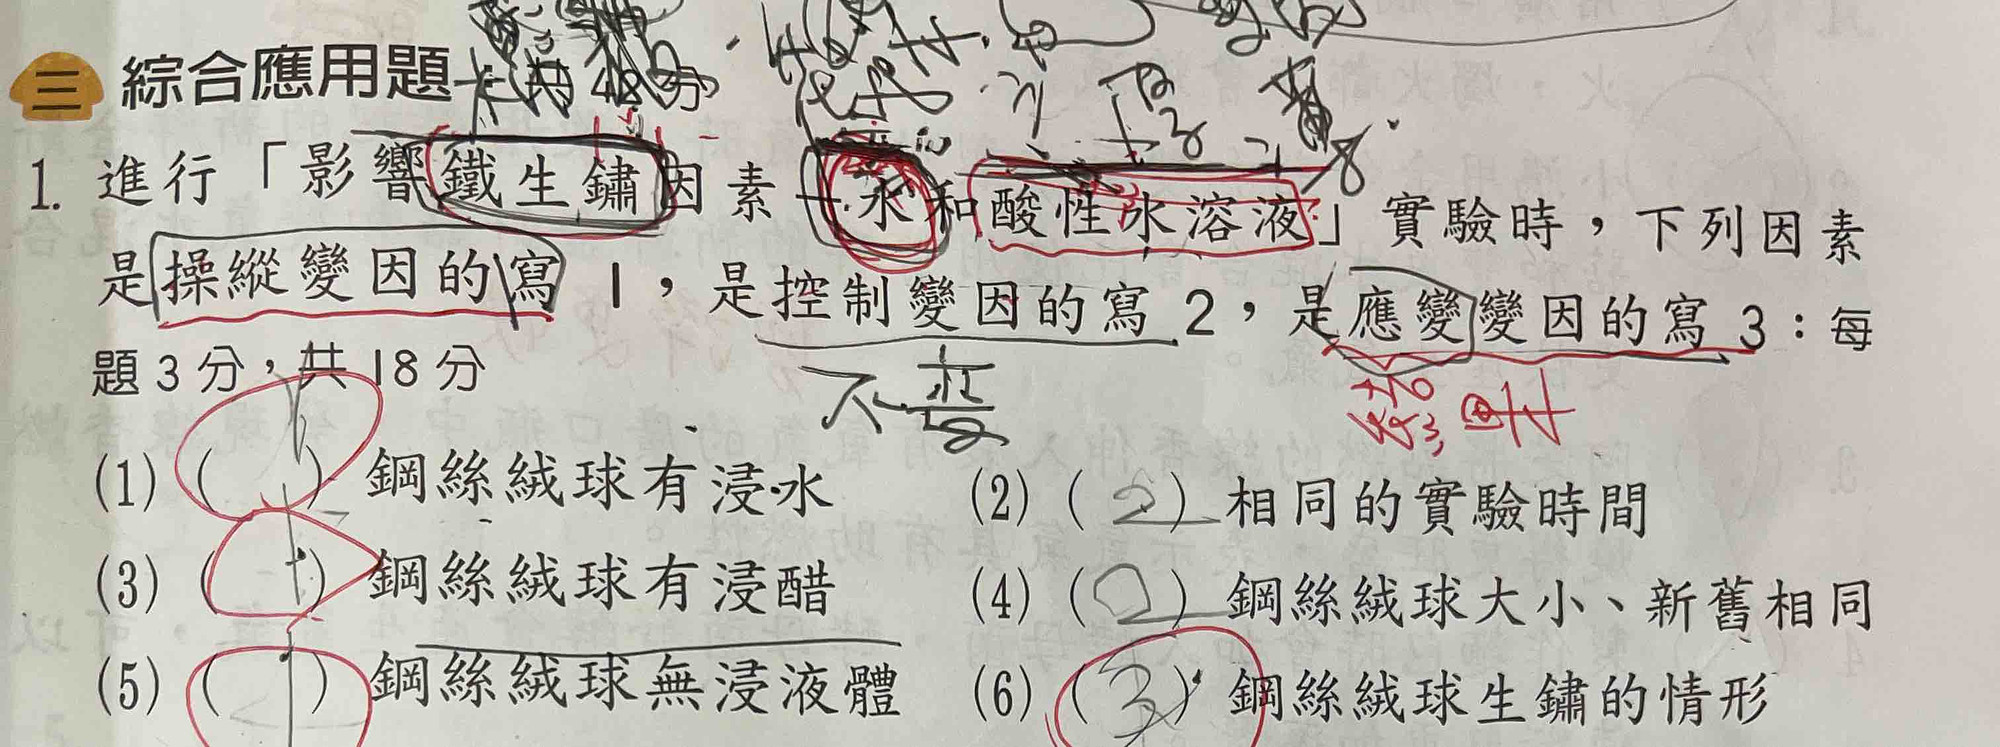 三 綜合應用題 共48分
1. 進行「影響鐵生鏽因素—水和酸性水溶液」實驗時，下列因素
是操縱變因的寫 1，是控制變因的寫 2，是應變變因的寫 3：每
題 3 分，共 18 分
不變
結果
(1) ( 1 ) 鋼絲絨球有浸水 (2) ( 2 ) 相同的實驗時間
(3) ( 1 ) 鋼絲絨球有浸醋 (4) ( 2 ) 鋼絲絨球大小、新舊相同
(5) ( 1 ) 鋼絲絨球無浸液體 (6) ( 3 ) 鋼絲絨球生鏽的情形